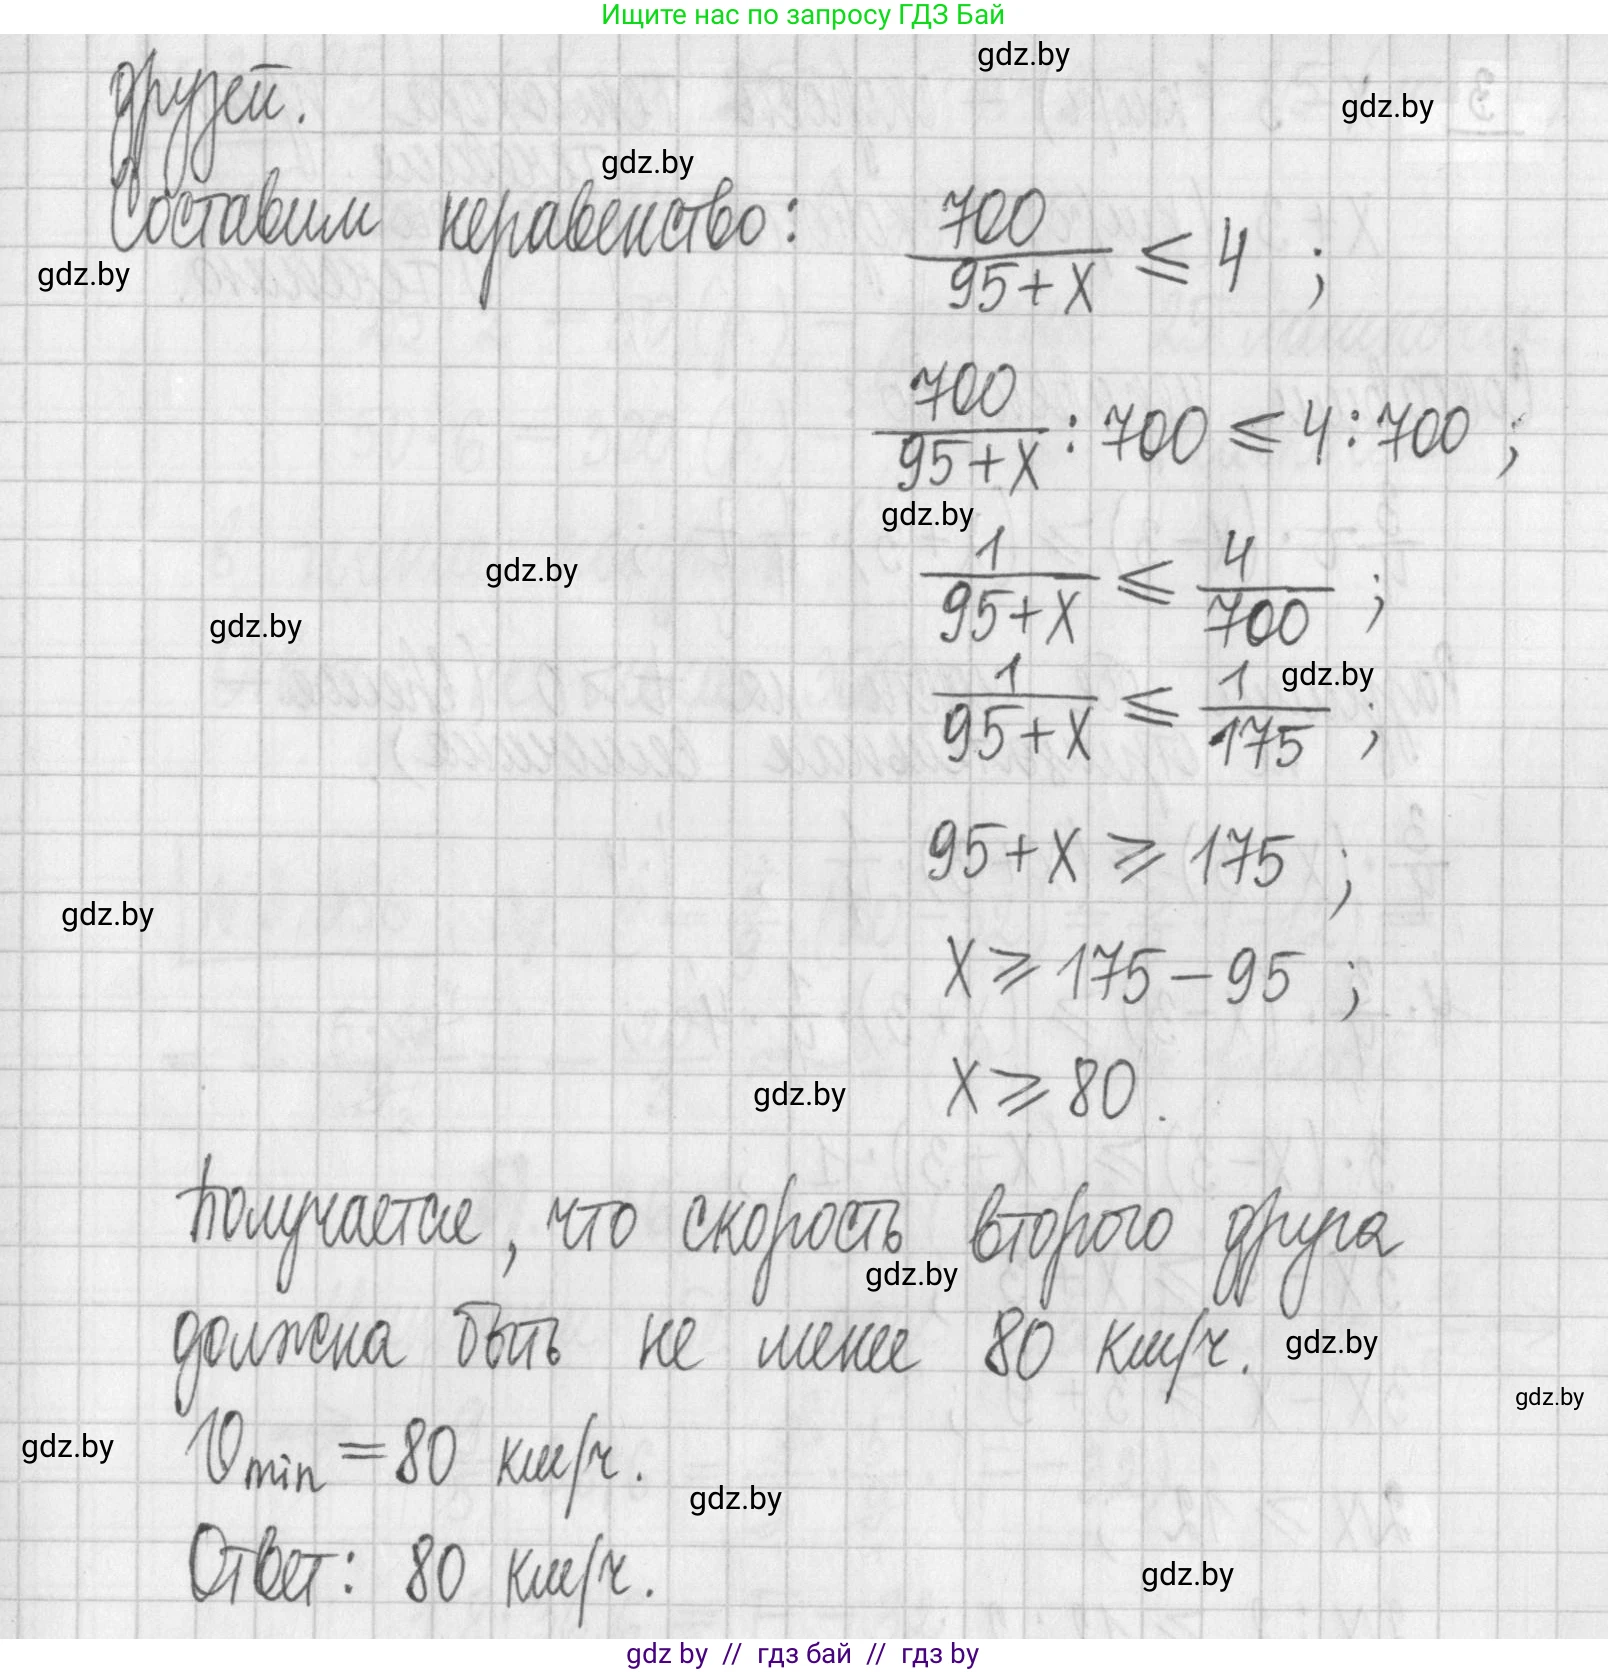 Ищите нас по запросу ГДЗ Бай
gdz.by
друзей.
gdz.by
gdz.by
Составим неравенство: 700/(95+x) ⩽ 4 ;
gdz.by
700/(95+x) : 700 ⩽ 4 : 700 ;
gdz.by
gdz.by
1/(95+x) ⩽ 4/700 ;
gdz.by
1/(95+x) ⩽ 1/175 ;
gdz.by
95+x ⩾ 175 ;
gdz.by
x ⩾ 175 − 95 ;
x ⩾ 80.
gdz.by
Получается, что скорость второго друга
gdz.by
должна быть не менее 80 км/ч.
gdz.by
gdz.by
Vmin = 80 км/ч.
gdz.by
gdz.by
Ответ: 80 км/ч.
gdz.by
gdz by // гдз бай // gdz by